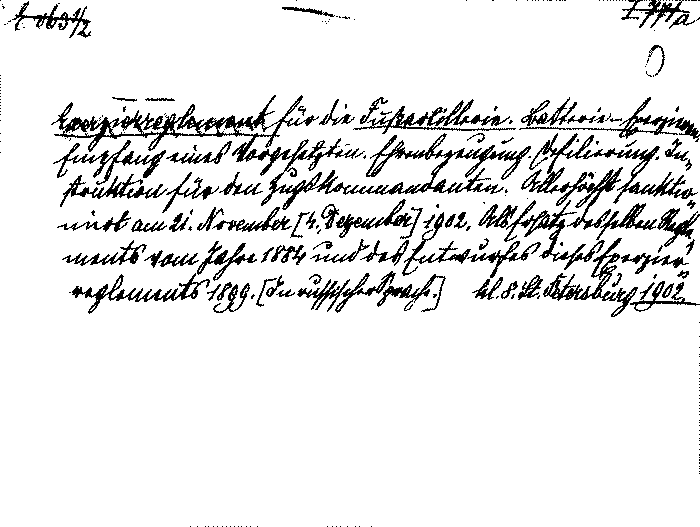 Exerzierreglement für die Fußartillerie. Batterie-Exerzieren.
Empfang eines Vorgesetzten. Ehrenbezeugung. Defilierung. In-
struktion für den Zugskommandanten. Allerhöchst sanktio-
nirt am 21. November [4. Dezember] 1902. Als Ersatz desselben Regle-
ments vom Jahre 1884 und des Entwurfes dieses Exerzier-
reglements 1899. [In russischer Sprache.] kl. 8. St. Petersburg 1902.